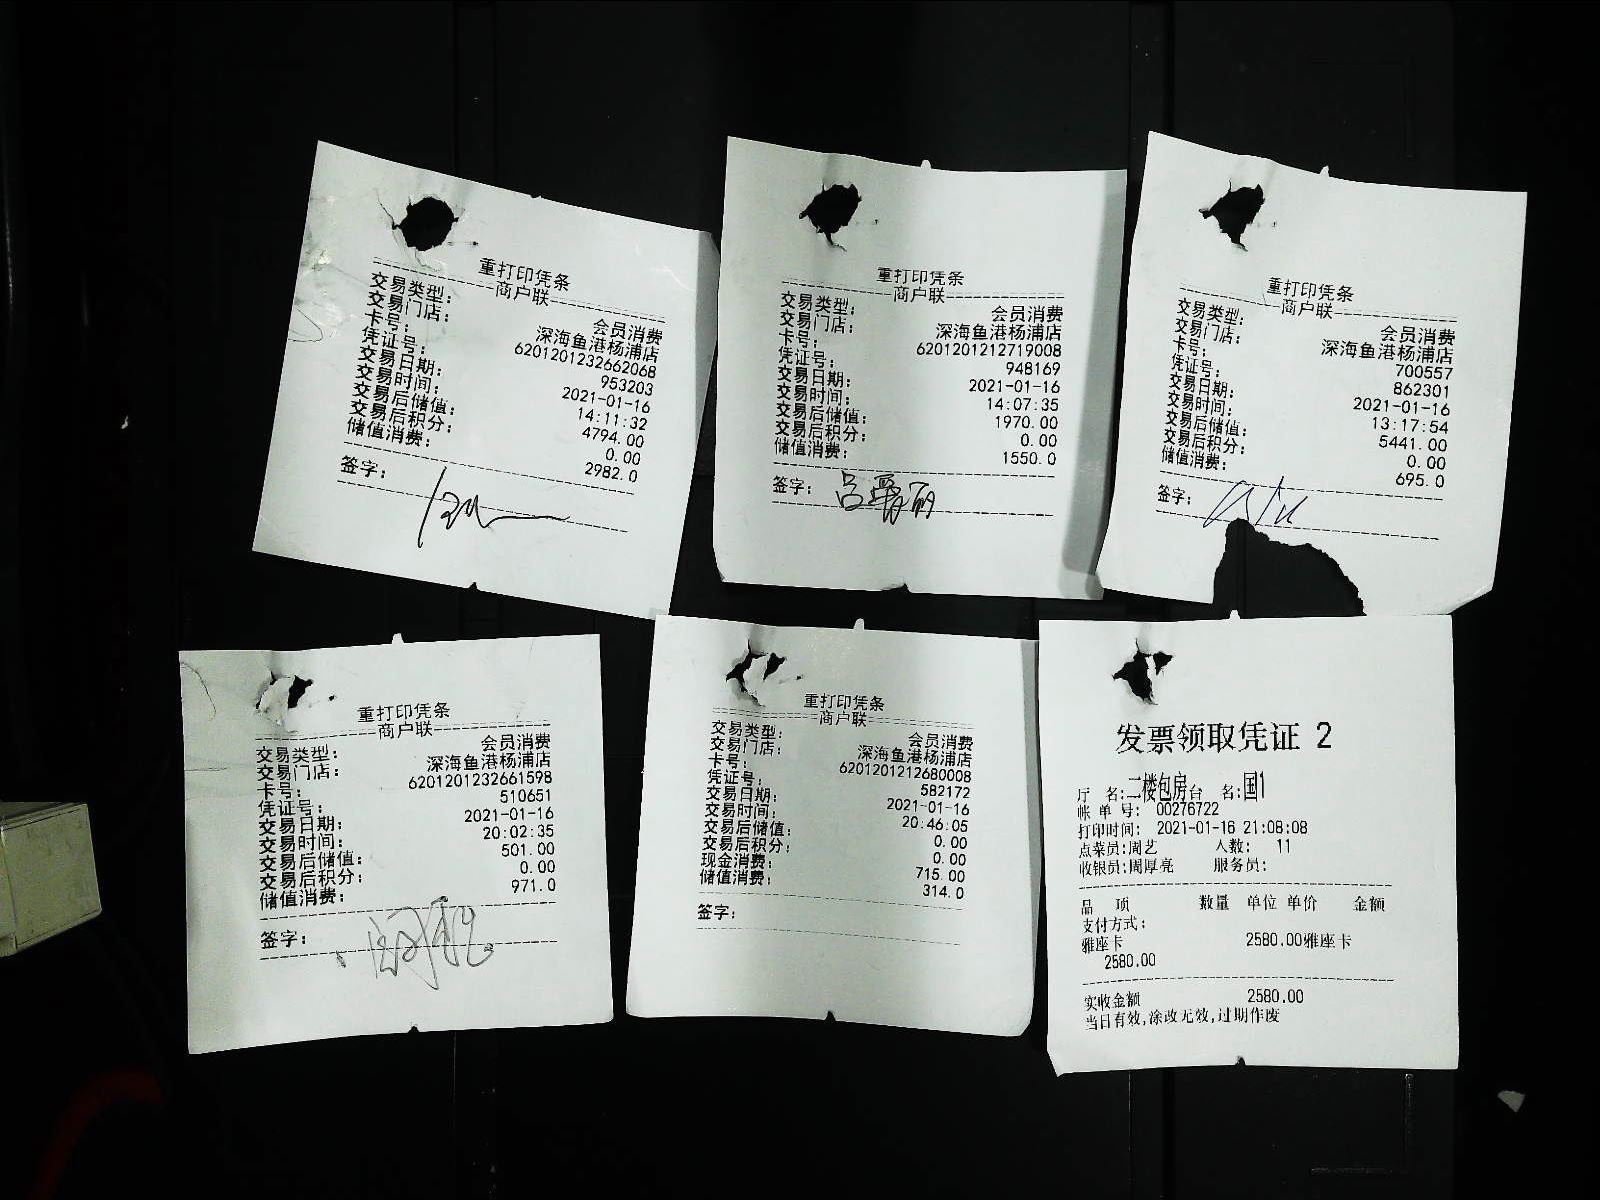 重打印凭条
商户联
交易类型： 会员消费
交易门店： 深海鱼港杨浦店
卡号： 6201201232662068
凭证号： 953203
交易日期： 2021-01-16
交易时间： 14:11:32
交易后储值： 4794.00
交易后积分： 0.00
储值消费： 2982.0
签字：
重打印凭条
商户联
交易类型： 会员消费
交易门店： 深海鱼港杨浦店
卡号： 6201201212719008
凭证号： 948169
交易日期： 2021-01-16
交易时间： 14:07:35
交易后储值： 1970.00
交易后积分： 0.00
储值消费： 1550.0
签字：
重打印凭条
商户联
交易类型： 会员消费
交易门店： 深海鱼港杨浦店
卡号： 700557
凭证号： 862301
交易日期： 2021-01-16
交易时间： 13:17:54
交易后储值： 5441.00
交易后积分： 0.00
储值消费： 695.0
签字：
重打印凭条
商户联
交易类型： 会员消费
交易门店： 深海鱼港杨浦店
卡号： 6201201232661598
凭证号： 510651
交易日期： 2021-01-16
交易时间： 20:02:35
交易后储值： 501.00
交易后积分： 0.00
储值消费： 971.0
签字：
重打印凭条
商户联
交易类型： 会员消费
交易门店： 深海鱼港杨浦店
卡号： 6201201212680008
凭证号： 582172
交易日期： 2021-01-16
交易时间： 20:46:05
交易后储值： 0.00
交易后积分： 0.00
现金消费： 715.00
储值消费： 314.0
签字：
发票领取凭证 2
厅 名：二楼包房台 名：国1
帐 单 号： 00276722
打印时间： 2021-01-16 21:08:08
点菜员：周艺 人数： 11
收银员：周厚亮 服务员：
品 项 数量 单位 单价 金额
支付方式：
雅座卡 2580.00雅座卡
2580.00
实收金额 2580.00
当日有效，涂改无效，过期作废